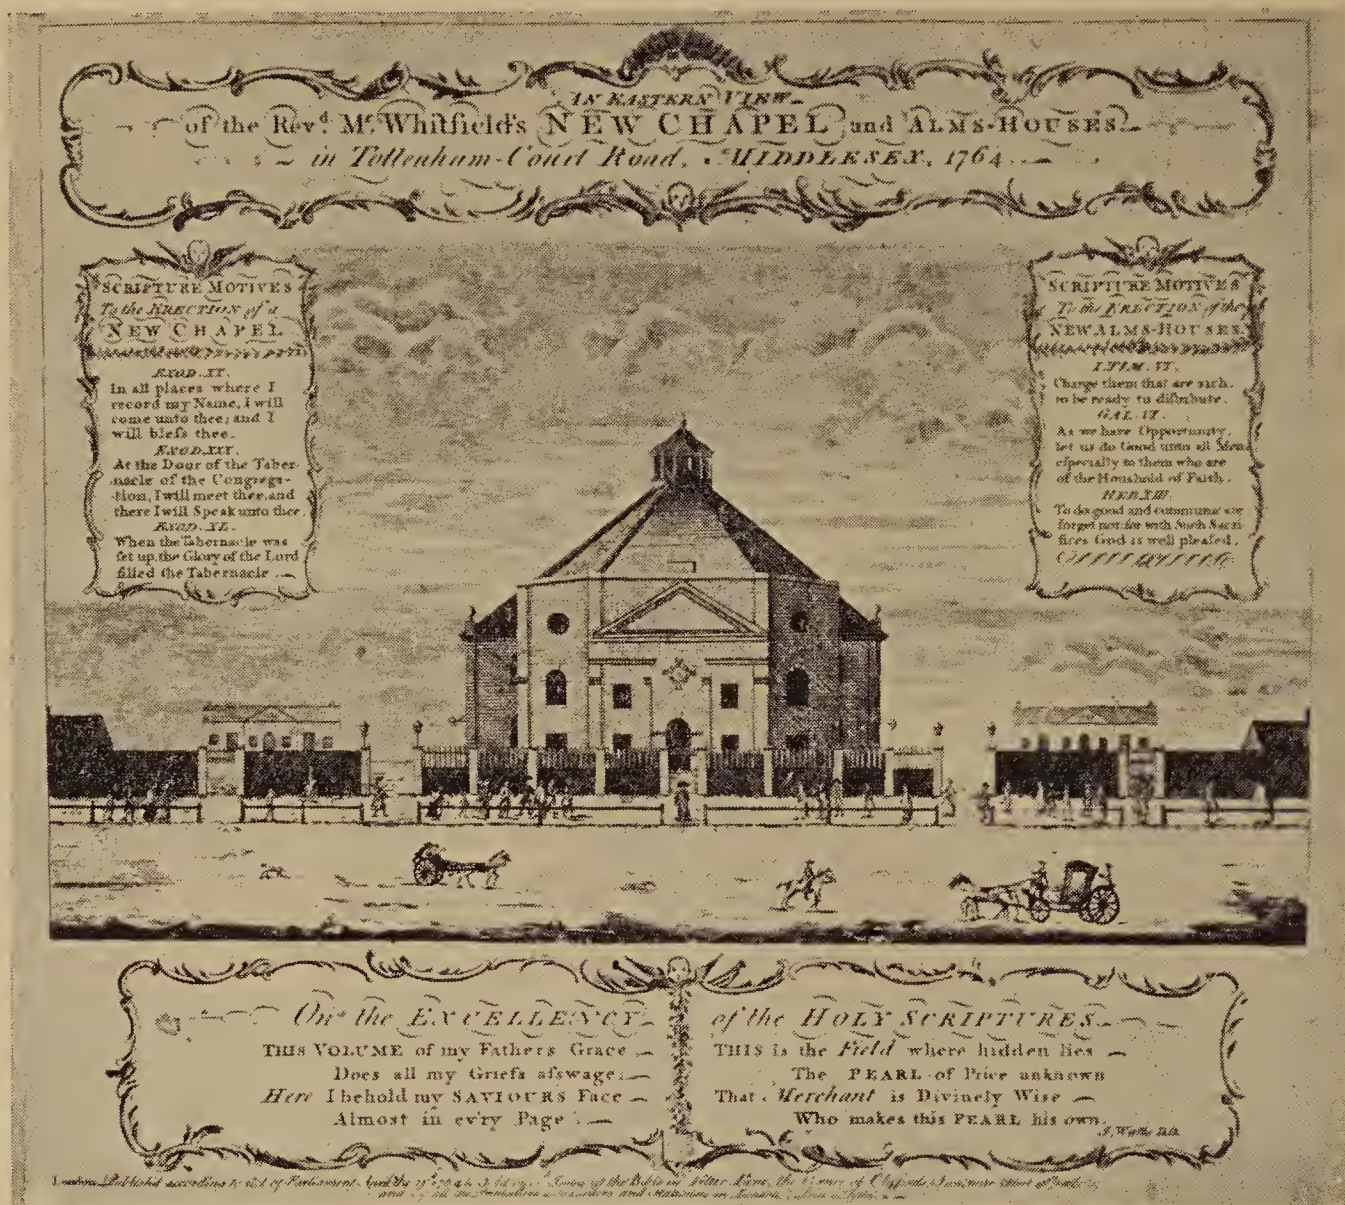 AN EASTERN VIEW
of the Revd. Mr. Whitfield's NEW CHAPEL and ALMS-HOUSES
in Tottenham-Court Road, MIDDLESEX, 1764
SCRIPTURE MOTIVES
To the ERECTION of a
NEW CHAPEL
EXOD. XX.
In all places where I
record my Name, I will
come unto thee; and I
will bless thee.
EXOD. XXX.
At the Door of the Taber-
nacle of the Congrega-
-tion, I will meet thee, and
there I will Speak unto thee.
EXOD. XL.
When the Tabernacle was
set up, the Glory of the Lord
filled the Tabernacle
SCRIPTURE MOTIVES
To the ERECTION of the
NEW ALMS-HOUSES.
I TIM. VI.
Charge them that are rich,
to be ready to distribute.
GAL. VI.
As we have Opportunity,
let us do Good unto all Men,
especially to them who are
of the Houshold of Faith.
HEB. XIII.
To do good and communicate
forget not for with Such Sacri-
fices God is well pleased.
On the EXCELLENCY
THIS VOLUME of my Fathers Grace
Does all my Griefs asswage:
Here I behold my SAVIOURS Face
Almost in ev'ry Page
of the HOLY SCRIPTURES
THIS is the Field where hidden lies
The PEARL of Price unknown
That Merchant is Divinely Wise
Who makes this PEARL his own.
I. Watts D.D.
London Published according to Act of Parliament